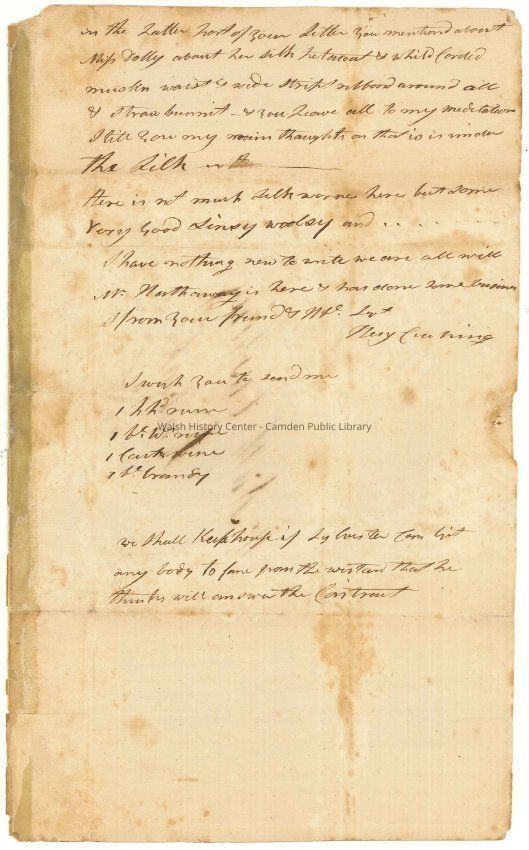 in the Latter part of your Letter you mentiond about
Miss Dolly about her silk & whild Corded
muslin waist & wide stript ribbond around all
& straw bunnit - & you Leave all to my
Still you my main thoughts on that is is under
the Silk in the
Here is not much silk worne here but some
Very Good Linsy woolsy and . . . .
I have nothing new to write we are all well
Mr. Hathaway is here & has done some business
I from your frund &
Cushing
I wish you to send me
1 hhd. rum
1 
1 wine
1 brandy
Walsh History Center - Camden Public Library
we shall Keep house if Sylvester Can Git
any body to from the westard that he
thinks will answer the Contract